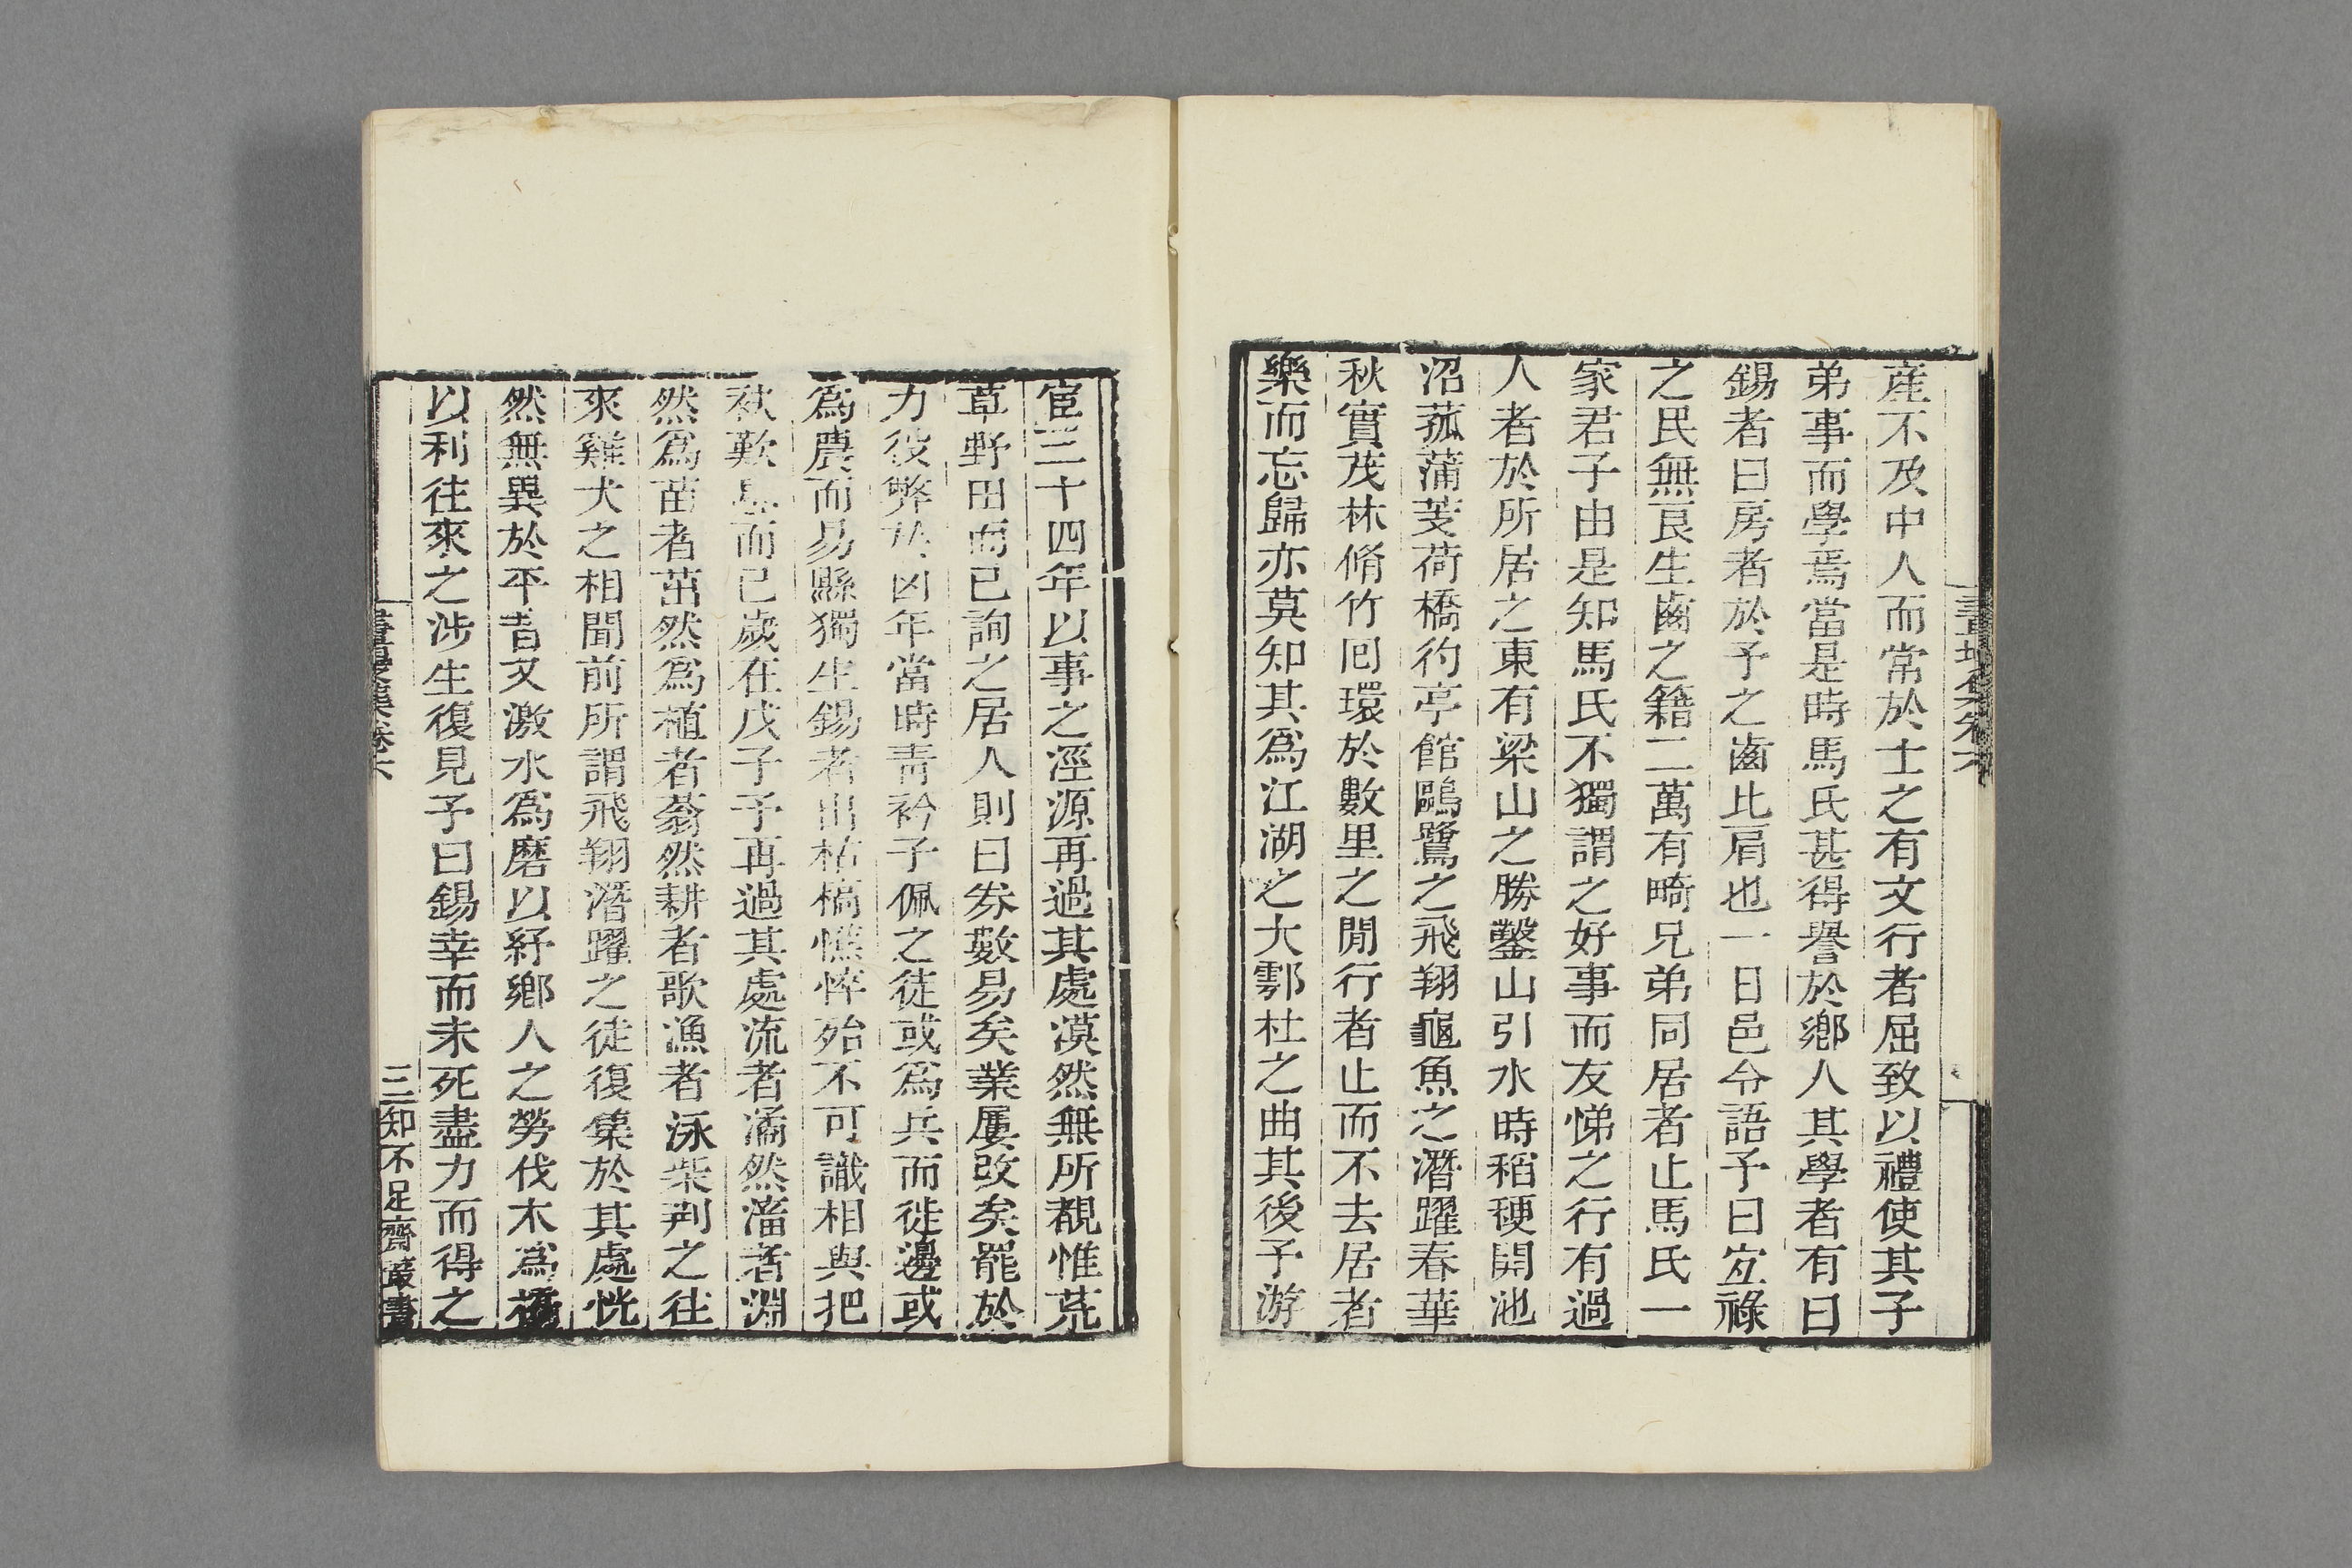 產不及中人而常於士之有文行者屈致以禮使其子
弟事而學焉當是時馬氏甚得譽於鄉人其學者有曰
錫者曰房者於予之齒比肩也一日邑令語予曰宐祿
之民無良生齒之籍二萬有畸兄弟同居者止馬氏一
家君子由是知馬氏不獨謂之好事而友悌之行有過
人者於所居之東有梁山之勝鑿山引水時稻稉開池
沼菰蒲芰荷橋彴亭館鷗鷺之飛翔龜魚之潛躍春華
秋實茂林脩竹囘環於數里之閒行者止而不去居者
樂而忘歸亦莫知其爲江湖之大鄠杜之曲其後予游
宦三十四年以事之涇源再過其處漠然無所覩惟荒
草野田而已詢之居人則曰券數易矣業屢改矣罷於
力役弊於凶年當時靑衿子佩之徒或爲兵而徙邊或
爲農而易縣獨生錫者出枯槁憔悴殆不可識相與把
秋歎息而已歲在戊子予再過其處流者潏然潴者淵
然爲苗者茁然爲植者蓊然耕者歌漁者泳柴荆之往
來雞犬之相聞前所謂飛翔潛躍之徒復集於其處恍
然無異於平昔又激水爲磨以紓鄉人之勞伐木爲橋
以利往來之涉生復見予曰錫幸而未死盡力而得之
畫墁集卷六
三知不足齋叢書